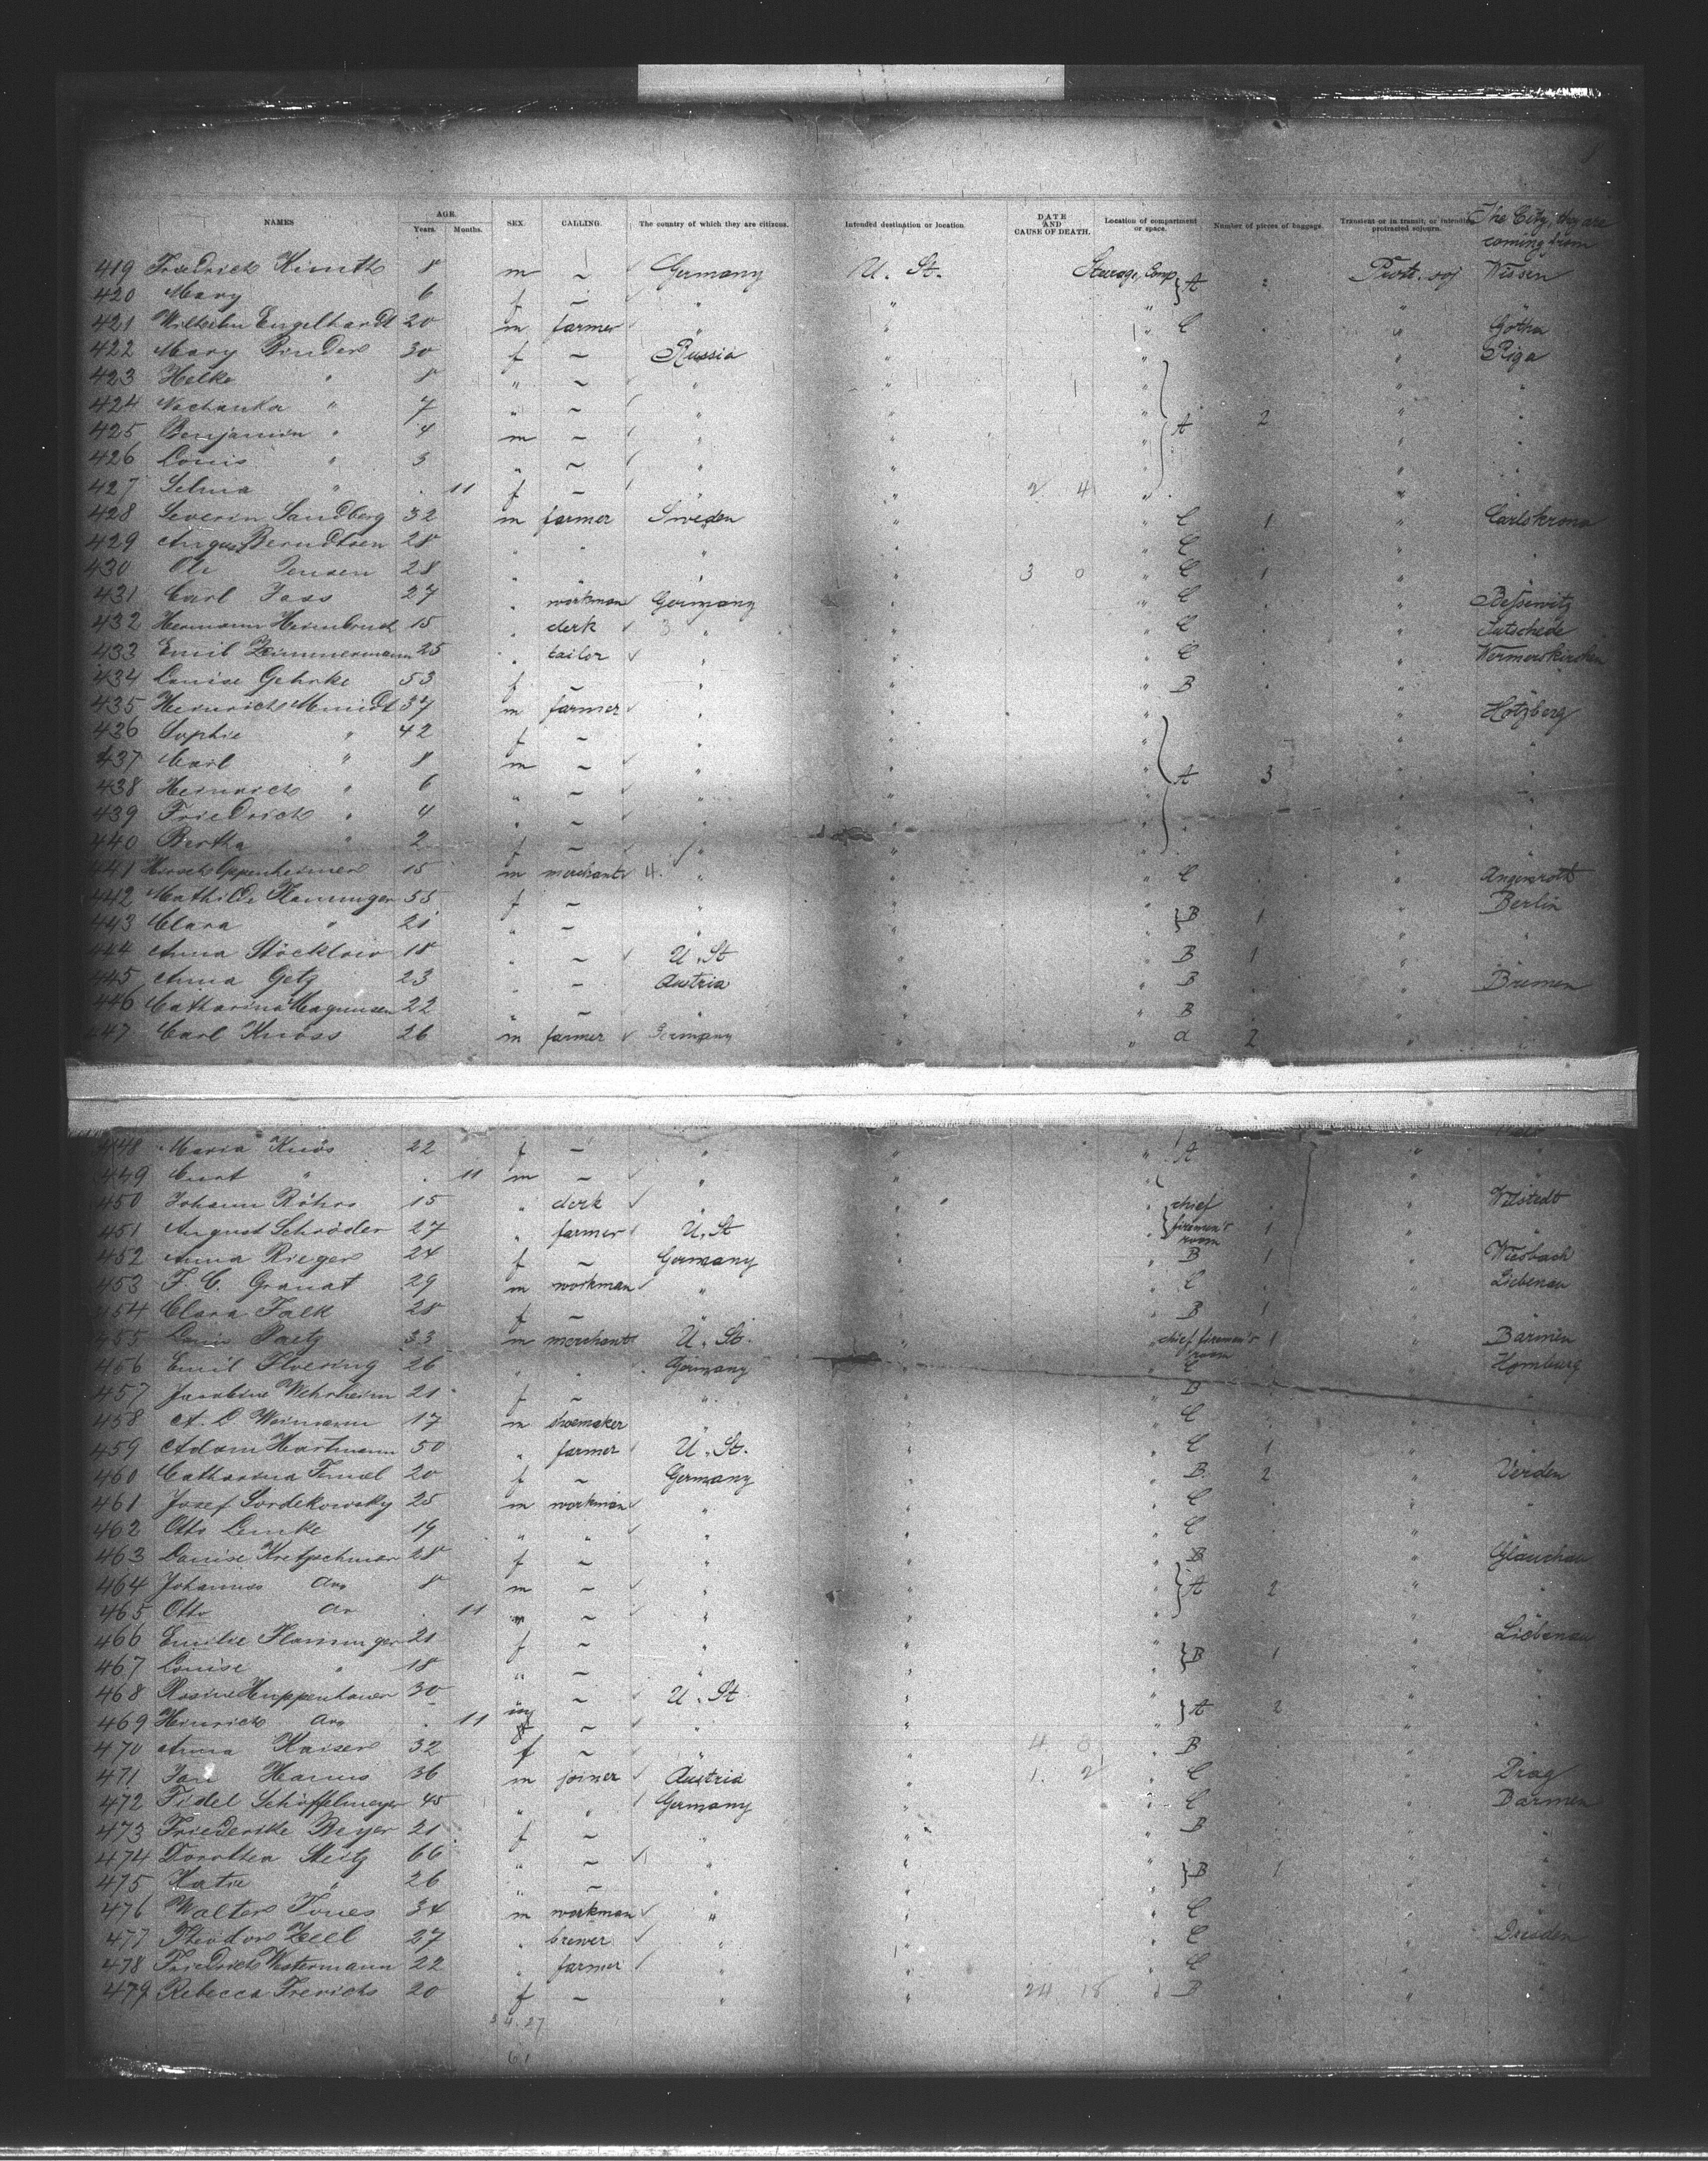 8
NAMES AGE. Years. Months. SEX. CALLING. The country of which they are citizens. Intended destination or location. DATE AND CAUSE OF DEATH. Location of compartment or space. Number of pieces of baggage. Transient or in transit, or intending protracted sojourn. The City, they are coming from
419 Friedrich 8 m ~ Germany U. St. Steerage, Comp. A Protr. soj Nissen
420 Mary 6 f ~ "
421 Wilhelm Engelhardt 20 m farmer " " " C " Gotha
422 Mary Binder 30 f ~ Russia " " " Riga
423 Helke " 8 " ~ " " " "
424 " 7 " ~ " " " "
425 Benjamin " 4 m ~ " " " A 2 "
426 Louis " 3 " ~ " " " "
427 Selma " 11 f ~ " " 2 4 " "
428 Severin Sandberg 32 m farmer Sweden " " C 1 " Carlskrona
429 August Berndtsen 28 " " " " C "
430 Ole Jensen 28 " " " " 3 0 " C 1 "
431 Carl Jass 27 " workman Germany " " C "
432 Hermann Heimbruch 15 " clerk 3 " " " C "
433 Emil Zimmermann 25 " tailor " " " C " Wermerskirchen
434 Louise Gehrke 53 f ~ " " " B "
435 Heinrich 37 m farmer " " " " Hötzberg
436 Sophie " 42 f ~ " " " "
437 Carl " 8 m ~ " " " A 3 "
438 Heinrich " 6 " ~ " " " "
439 Friedrich " 4 " ~ " " " "
440 Bertha " 2 f ~ " " " "
441 Hirsch Oppenheimer 15 m merchant 4 " " " C " Angenroth
442 Mathilde 55 f ~ " " " " Berlin
443 Clara " 21 " ~ " " B 1 "
444 Anna 18 " ~ U. St " " B 1 "
445 Anna Getz 23 " ~ Austria " " B " Bremen
446 Catharina Magnussen 22 " ~ " " " B "
447 Carl Knöss 26 m farmer Germany " " a 2 "
448 Maria Knös 22 f ~ " " " A "
449 Curt " 11 m ~ " " " "
450 Johann Röhrs 15 " clerk " " " chief " Wilstedt
451 August Schröder 27 " farmer U. St " " firemen's room 1 "
452 Anna Rieger 24 f ~ Germany " " B 1 " Wiesbach
453 F. C. Granat 29 m workman " " " C " Liebenau
454 Clara Falk 28 f ~ " " " B 1 "
455 Louis Paetz 33 m merchant U. St. " " chief firemen's room 1 " Barmen
456 Emil 26 " " Germany " " C " Homburg
457 Jacobine Wehrheim 21 f ~ " " " B "
458 A. D. Weimann 17 m shoemaker " " " C "
459 Adam Hartmann 50 " farmer U. St. " " C 1 "
460 Catharina 20 f ~ Germany " " B 2 " Verden
461 Josef Sordekowsky 25 m workman " " " C "
462 Otto Lemke 19 " " " " " C "
463 Louise Kretzschmar 28 f ~ " " " B " Glauchau
464 Johannes 8 m ~ " " " A 2 "
465 Otto 11 " ~ " " "
466 Emilie 21 f ~ " " " " Liebenau
467 Louise " 18 " ~ " " B 1 "
468 Rosine Huppenbauer 30 ~ U. St. " " " "
469 Heinrich 11 ~ " " " A 2 "
470 Anna Kaiser 32 f ~ " " 4 " B "
471 Jan Hanus 36 m joiner Austria " 1 2 " C " Prag
472 Fidel Schöffelmeyer 45 " " Germany " " C " Barmen
473 Friederike Beyer 21 f ~ " " " B "
474 Dorothea Steitz 66 " ~ " " "
475 Katie " 26 " ~ " " B 1 "
476 Walter 34 m workman " " " C "
477 Theodor Zell 27 " brewer " " " C " Dresden
478 Friedrich Westermann 22 " farmer " " " C "
479 Rebecca Frerichs 20 f ~ " " 24 18 " B "
34. 27
61